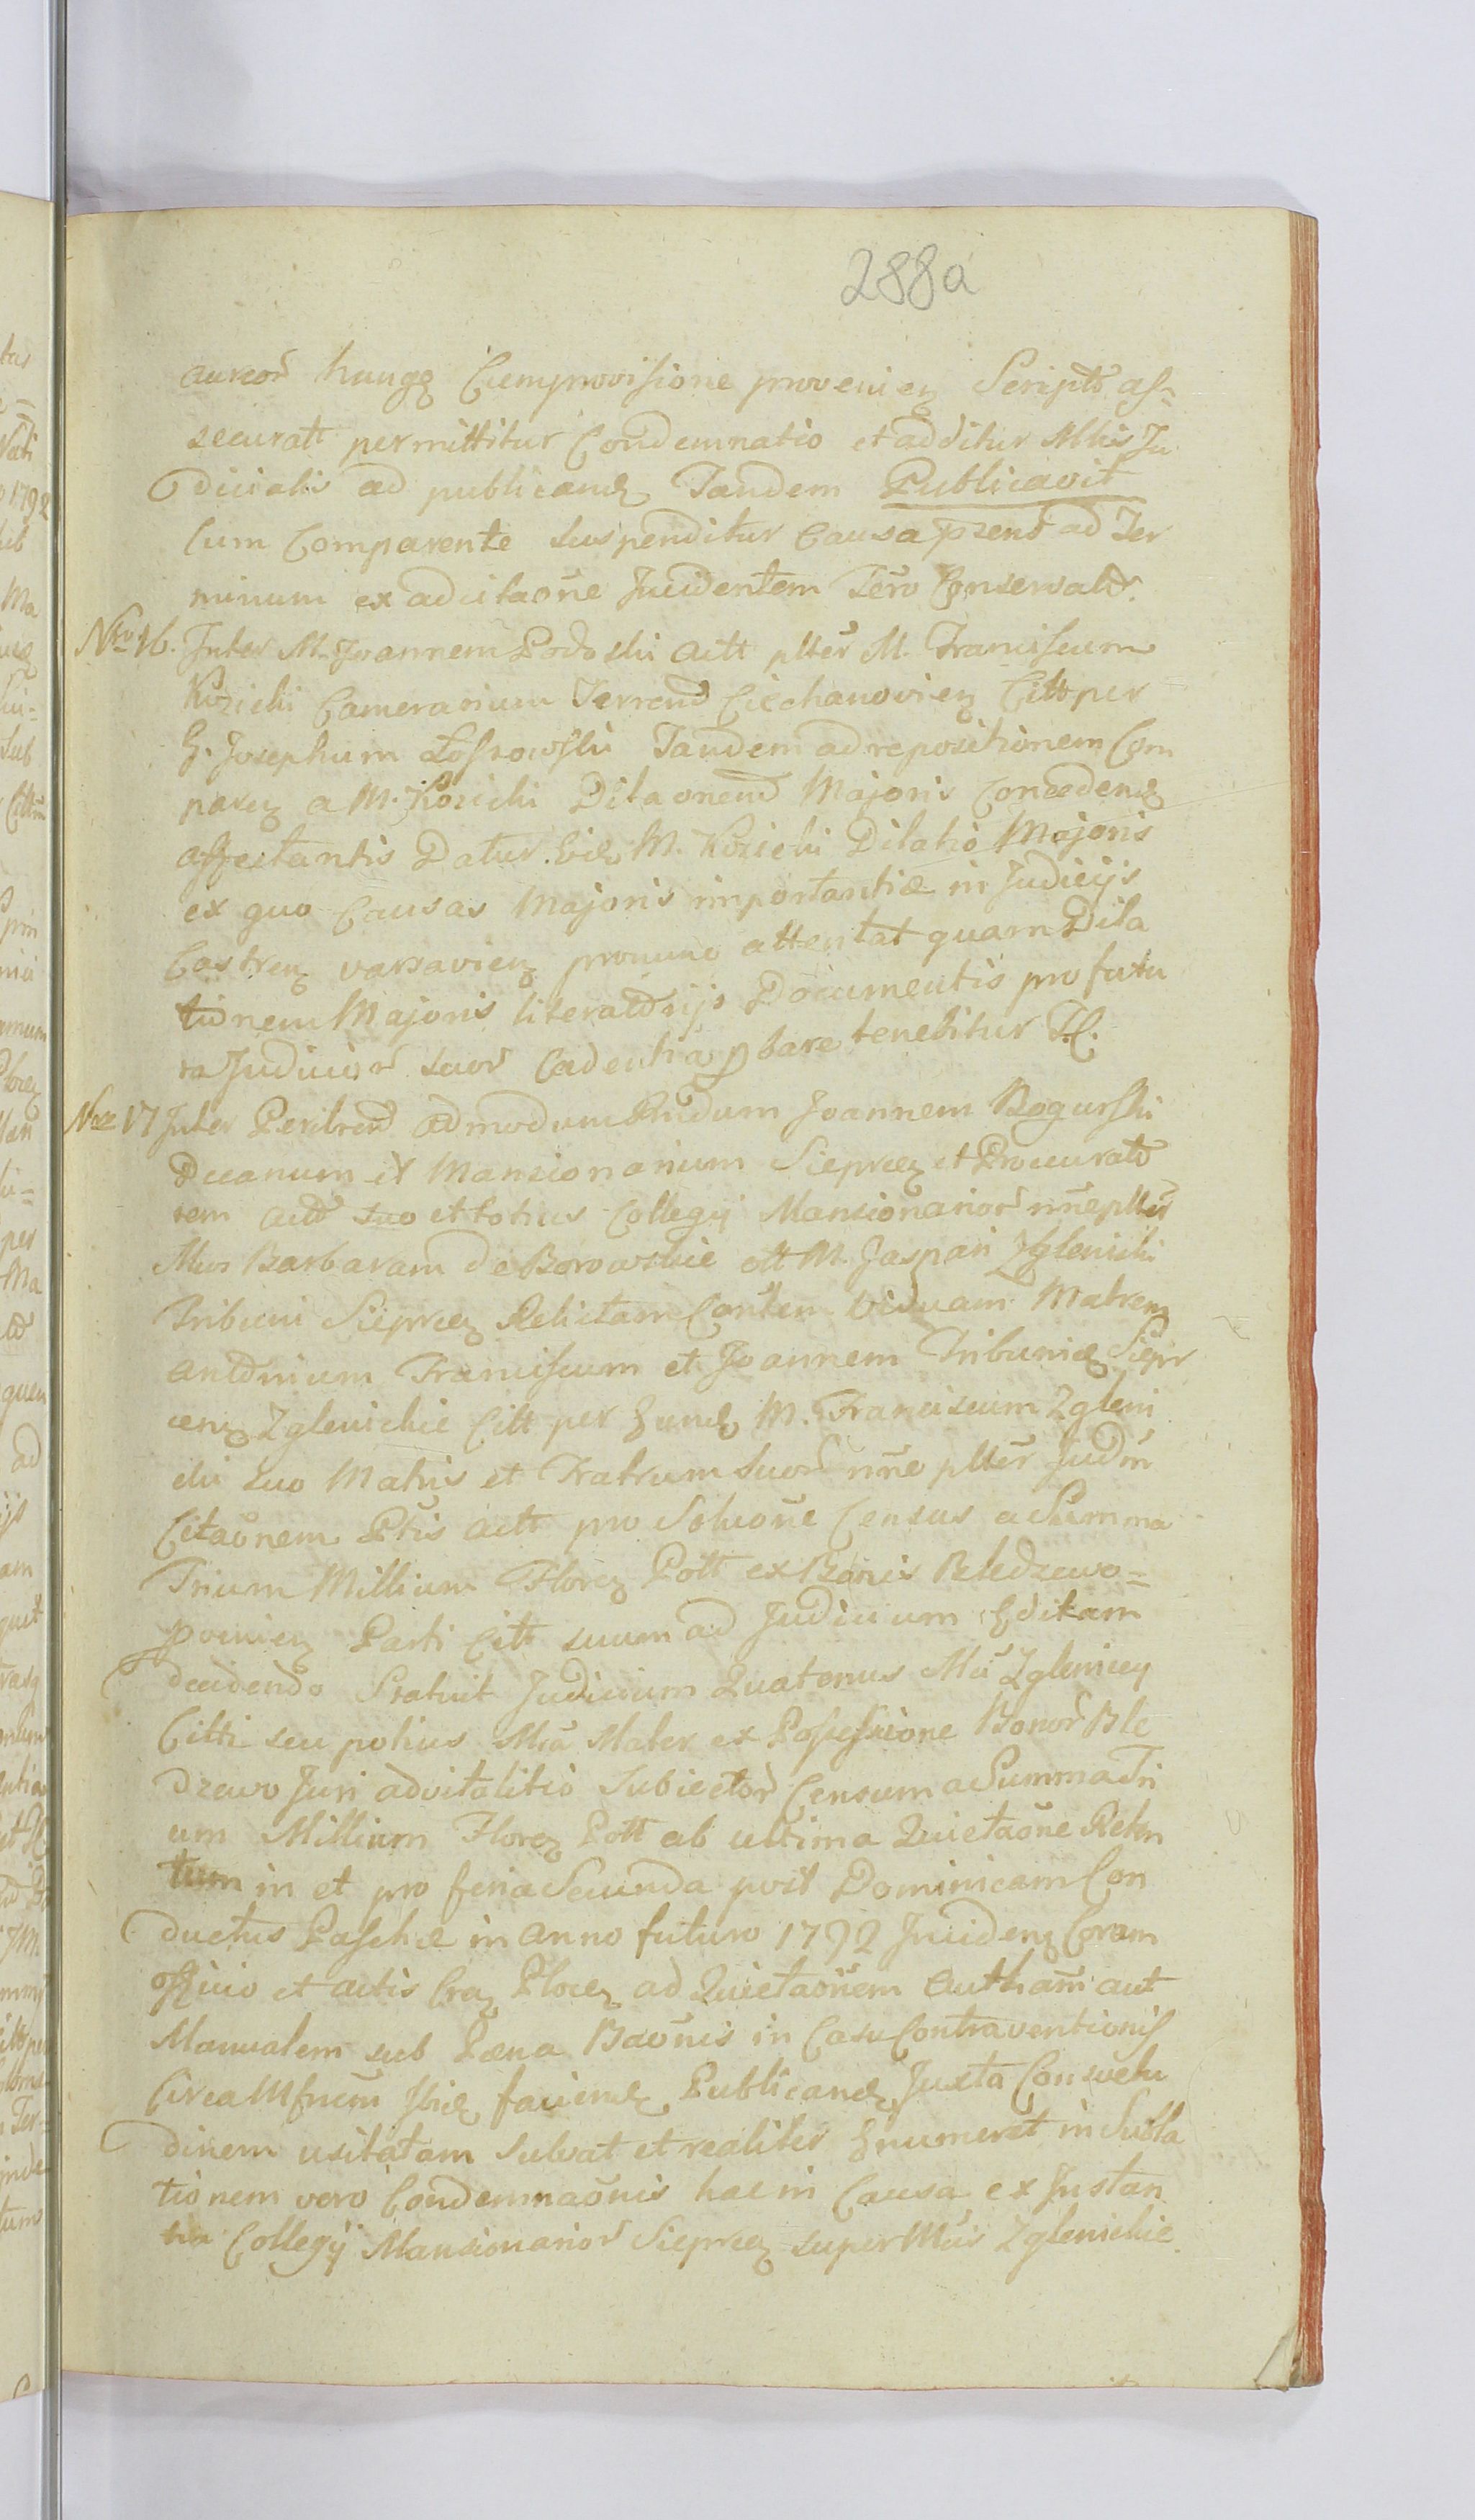 288a
aureor̃ hungq Ciemprovisione provenienq Scripto as=
securatt permittitur Condemnatio et additur Mtris Ju
dicialis ad publicandq Tandem Publicavit
Cum Comparente Suspenditur Causa pzens ad Ter
minum ex adcitaõne Incidentem Terõ Conservato.
Nro 16. Inter M. Joannem Podoski Actt plter̃ M. Franciscum
Kozicki Camerarium Terrend Ciechanovienq Citt per
G. Josephum Lossowski Tandem ad repositionem Com
parenq a M. Kozicki Dilaonend Majoris Concedendq
affectantis Datur Eidq M. Kozicki Dilatio Majoris
ex quo Causas Majoris importantiæ in Judicijs
Castrenq varsavienq pronunc attentat quam Dila
tionem Majoris literatorijs Documentis pro futu
ra Judicior̃ suor̃ Cadentia pbare tenebitur
Nro 17 Inter Perilrend admodum Rndum Joannem Bogurski
Decanum et Mansionarium Sieprcenq et Procurato
rem act suo et totius Collegij Mansionarior̃ nñe plter̃
Mm Barbaram de Borowskie ott M. Jaspari Zglenicki
Tribuni Sieprcenq Relictam Consten Viduam Matrem
Antonium Franciscum et Joannem Tribunidq Siepr
cenq Zglenickie Citt per Eundq M. Franciscum Zgleni
cki suo Matris et Fratrum Suor̃ nñe plter̃ Judm̃
Citaõnem Ptis actt pro Soluoñe Census a Summa
Trium Millium Florenq Poll ex Bonis Bledzewo=
pvenienq Parti Citt suum ad Judicium Editam
decidendo Statuit Judicium Quatenus Mci Zgleniccy
Citti seu potius Mca Mater ex Possessione Bonor̃ Ble
dzewo Juri advitalitio Subiector̃ Censum a Summa Tri
um Millium Florenq Poll ab ultima Quietaõne Reten
tum in et pro feria Secunda post Dominicam Con
ductus Paschæ in anno futuro 1792 Incidenq Coram
officio et actis Cra Plocenq ad Quietaõnem Autham̃ aut
Manualem sub Pæna Baõnis in Casu Contraventionis
Circa Mfrum̃ faciendq Publicandq Juxta Consvetu
dinem usitatam Solvat et realiter Enumeret in Subla
tionem vero Condemnaõnis hac in Causa ex Instan
tia Collegij Mansionarior̃ Sieprcenq super Mcis Zglenickie